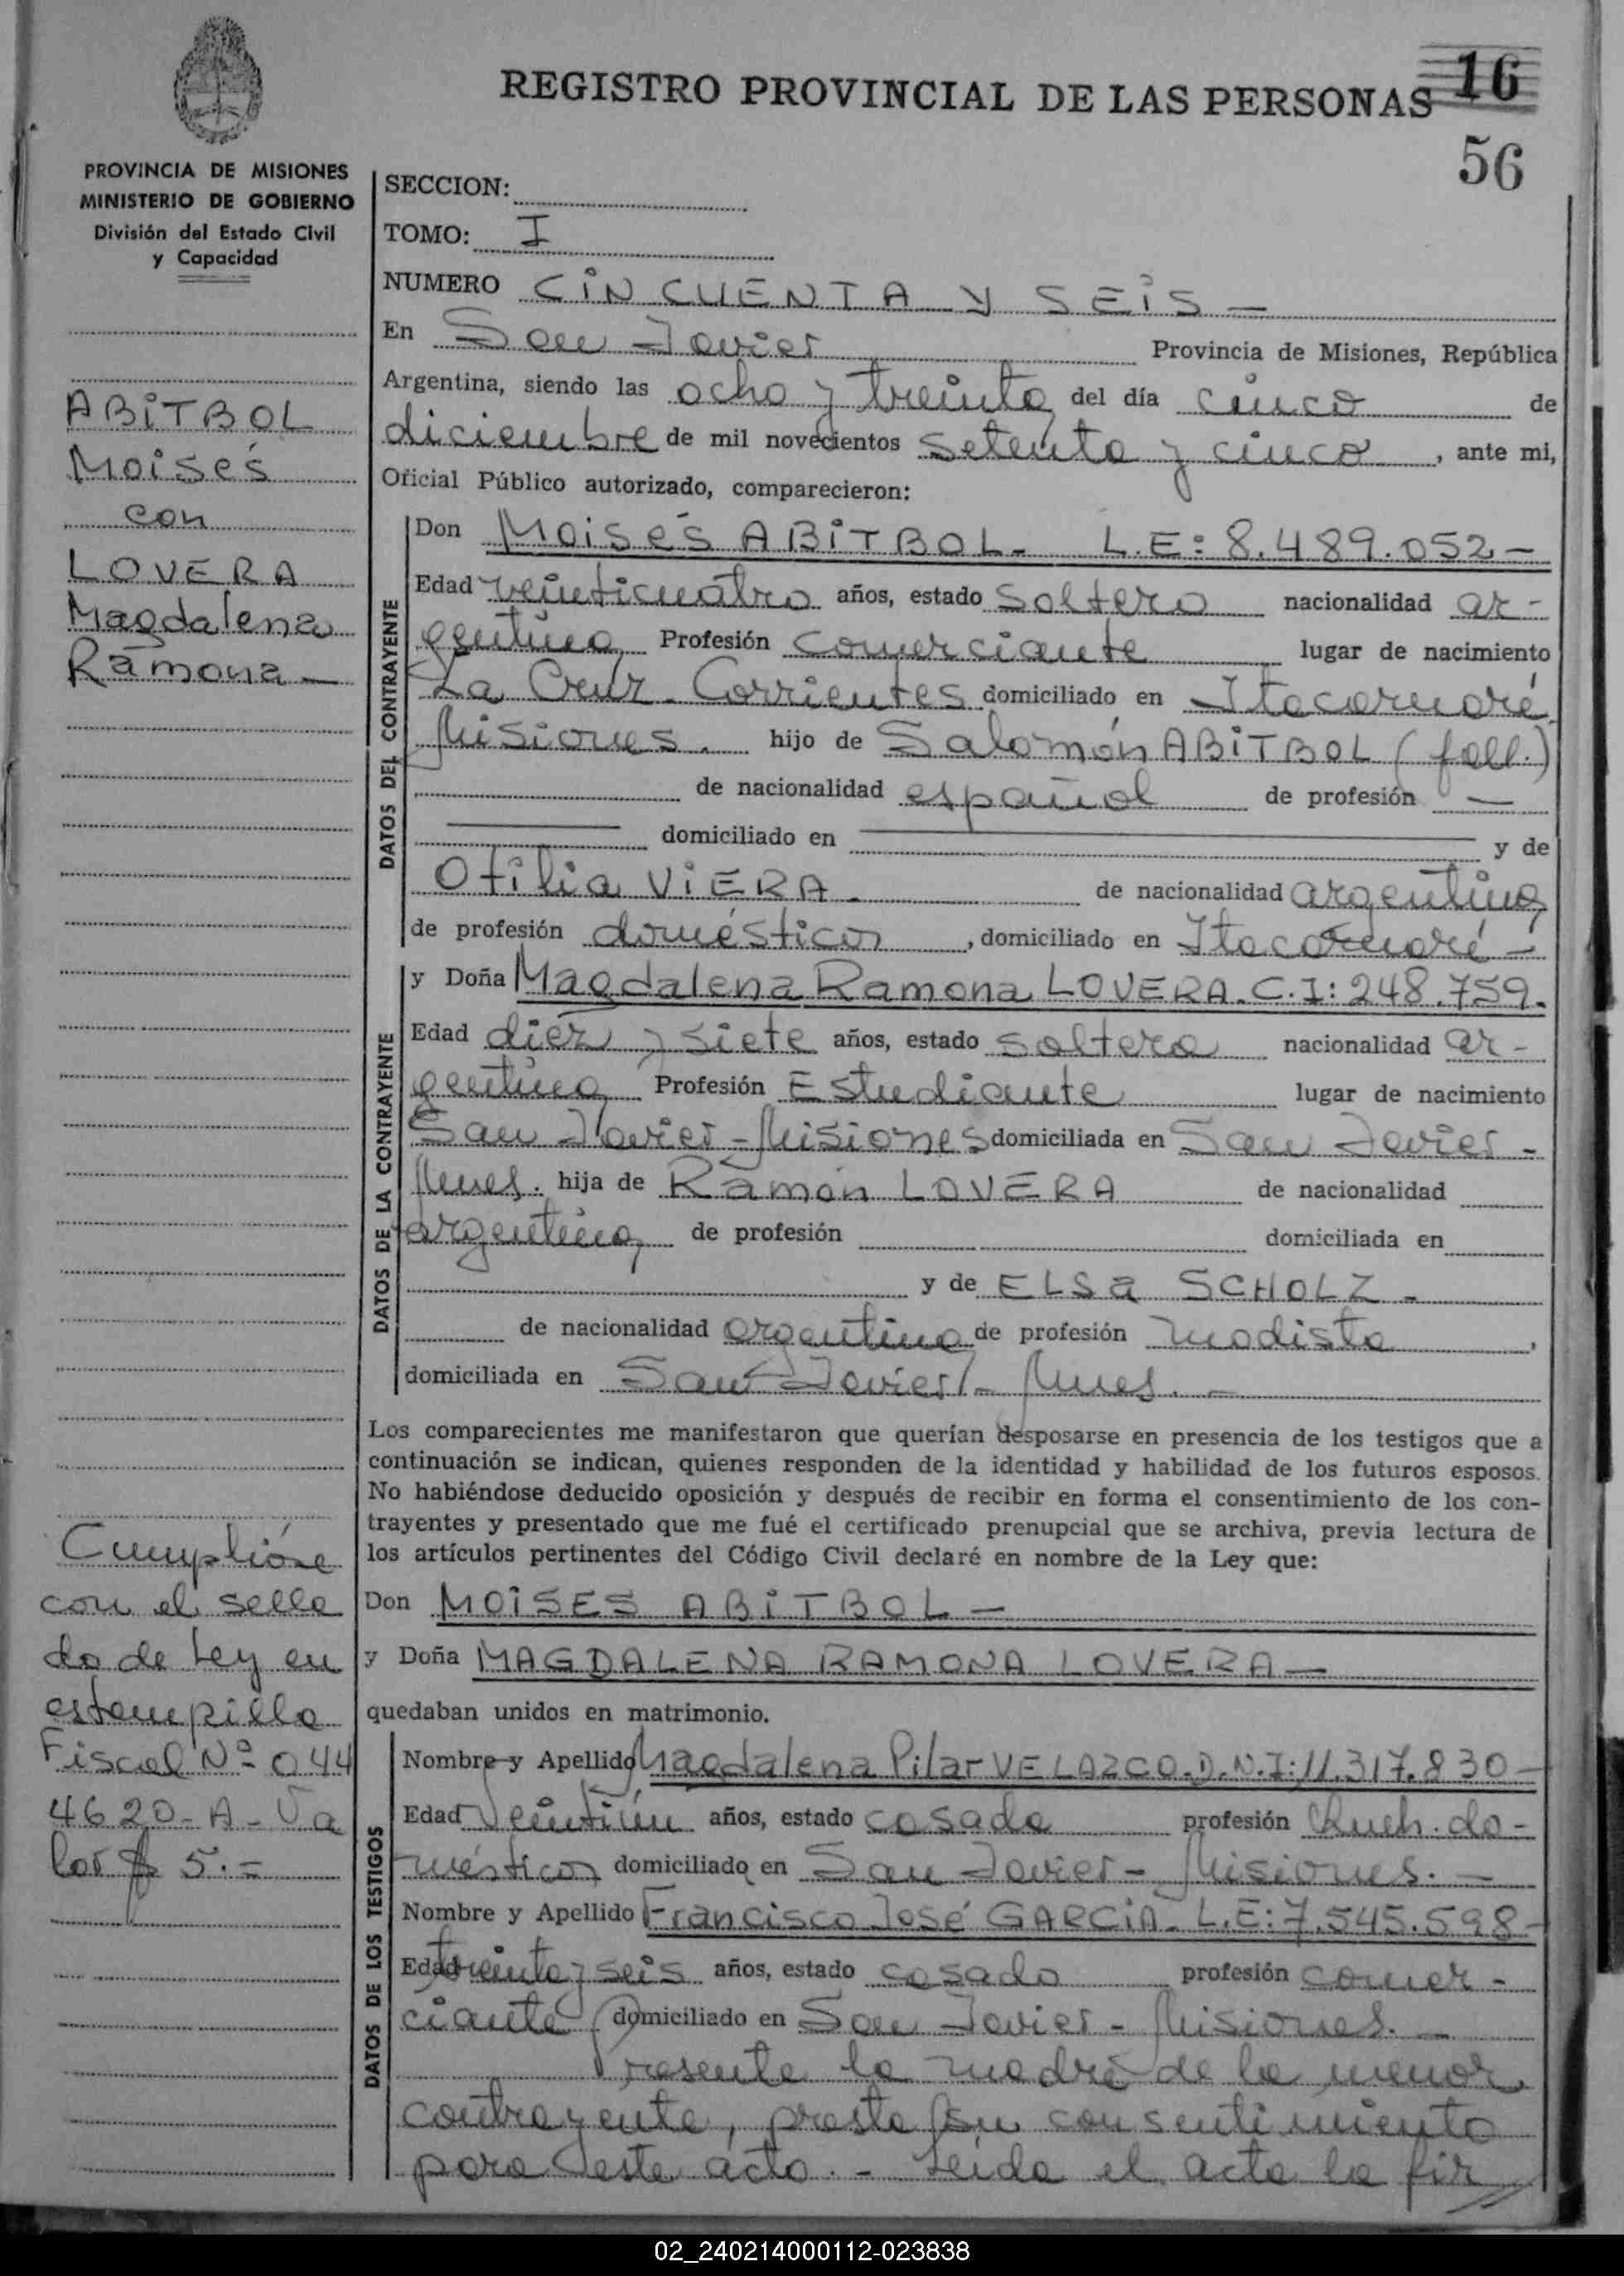 REGISTRO PROVINCIAL DE LAS PERSONAS 16
56
PROVINCIA DE MISIONES
MINISTERIO DE GOBIERNO
División del Estado Civil
y Capacidad
ABITBOL
Moisés
con
LOVERA
Magdalena
Ramona -
Cumplióse
con el sella
do de Ley en
estampilla
Fiscal Nº 044
4620-A- Va
lor $ 5.=
SECCION:
TOMO: I
NUMERO CINCUENTA Y SEIS -
En San Javier Provincia de Misiones, República
Argentina, siendo las ocho y treinta del día cinco de
diciembre de mil novecientos setenta y cinco, ante mi,
Oficial Público autorizado, comparecieron:
DATOS DEL CONTRAYENTE
Don Moisés ABITBOL - L.E: 8.489.052 -
Edad veinticuatro años, estado soltero nacionalidad ar-
gentina Profesión comerciante lugar de nacimiento
La Cruz - Corrientes domiciliado en Itacaruaré
Misiones. hijo de Salomón ABITBOL (fall.)
de nacionalidad español de profesión —
domiciliado en y de
Otilia VIERA de nacionalidad argentina
de profesión doméstica, domiciliado en Itacaruaré -
DATOS DE LA CONTRAYENTE
y Doña Magdalena Ramona LOVERA. C.I: 248.759.
Edad diez y siete años, estado soltera nacionalidad ar-
gentina Profesión Estudiante lugar de nacimiento
San Javier - Misiones domiciliada en San Javier -
Mnes. hija de Ramón LOVERA de nacionalidad
argentina de profesión domiciliada en
y de ELSA SCHOLZ -
de nacionalidad argentina de profesión modista,
domiciliada en San Javier - Mnes. -
Los comparecientes me manifestaron que querían desposarse en presencia de los testigos que a
continuación se indican, quienes responden de la identidad y habilidad de los futuros esposos.
No habiéndose deducido oposición y después de recibir en forma el consentimiento de los con-
trayentes y presentado que me fué el certificado prenupcial que se archiva, previa lectura de
los artículos pertinentes del Código Civil declaré en nombre de la Ley que:
Don MOISES ABITBOL -
y Doña MAGDALENA RAMONA LOVERA -
quedaban unidos en matrimonio.
DATOS DE LOS TESTIGOS
Nombre y Apellido Magdalena Pilar VELAZCO. D.N.I: 11.317.830 -
Edad veintiún años, estado casada profesión Queh. do-
mésticos domiciliado en San Javier - Misiones. -
Nombre y Apellido Francisco José GARCIA - L.E: 7.545.598 -
Edad treinta y seis años, estado casado profesión comer-
ciante domiciliado en San Javier - Misiones. -
Presente la madre de la menor
contrayente, presta su consentimiento
para este acto. - Leída el acta la fir
02_240214000112-023838